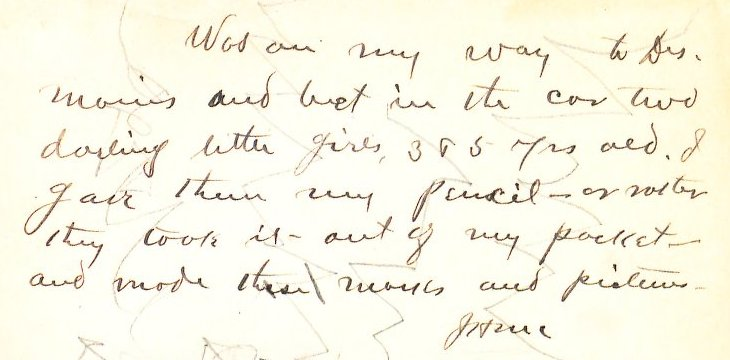 Was on my way to Des.
moines and met in the car two
darling little girls, 3 & 5 yrs old. I
gave them my pencil - or rather
they took it - out of my pocket -
and made these marks and pictures -